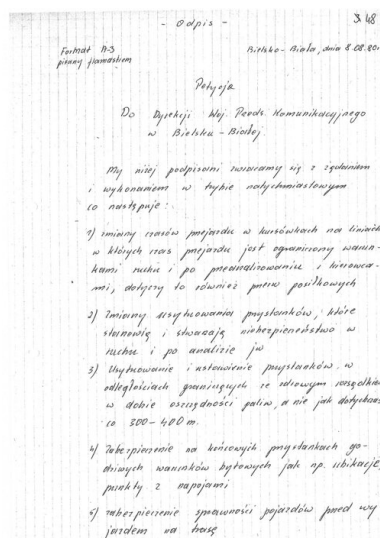 - Odpis -
3. 48
Format A-3
pisany flamastrem
Bielsko-Biała, dnia 8.08.80r
Petycja
Do Dyrekcji Woj. Przeds. Komunikacyjnego
w Bielsku-Białej
My niżej podpisani zwracamy się z żądaniem
i wykonaniem w trybie natychmiastowym
co następuje:
1) zmiany czasów przejazdu w kursówkach na liniach
w których czas przejazdu jest ograniczony warun-
kami ruchu i po przeanalizowaniu i kierowca-
mi, dotyczy to również przerw posiłkowych
2) Zmiany usytuowania przystanków, które
stanowią i stwarzają niebezpieczeństwo w
ruchu i po analizie jw
3) Usytuowanie i ustawienie przystanków w
odległościach graniczących ze zdrowym rozsądkiem
w dobie oszczędności paliw, a nie jak dotychczas
co 300-400 m.
4) Zabezpieczenie na końcowych przystankach go-
dziwych warunków bytowych jak np. ubikacje,
punkty z napojami
5) zabezpieczenie sprawności pojazdów przed wy
jazdem na trasę